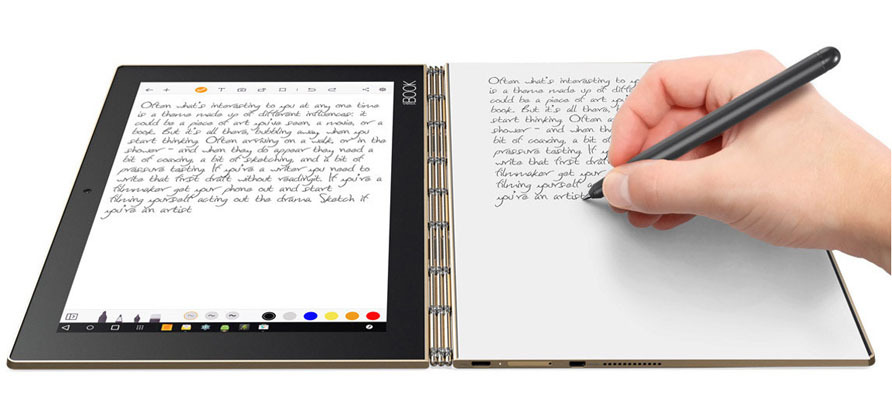 BOOK
Often what's interesting to you at any one time
is a theme made up of different influences; it
could be a piece of art you've seen, a movie, or a
book. But it's all there, bubbling away when you
start thinking. Often arriving on a walk, or in the
shower - and when they do appear they need a
bit of coaxing, a bit of sketching, and a bit of
pressure testing. If you're a writer you need to
write that first draft without readingit. If you're a
filmmaker get your phone out and start
filming yourself acting out the drama. Sketch if
you're an artist
Often what's interesting to you
is a theme made up of different
could be a piece of art
book. But it's all
start thinking. Often
shower - and when the
bit of coaxing, a bit
pressure testing. If
write that first draft
filmmaker get your
filming yourself
you're an artist